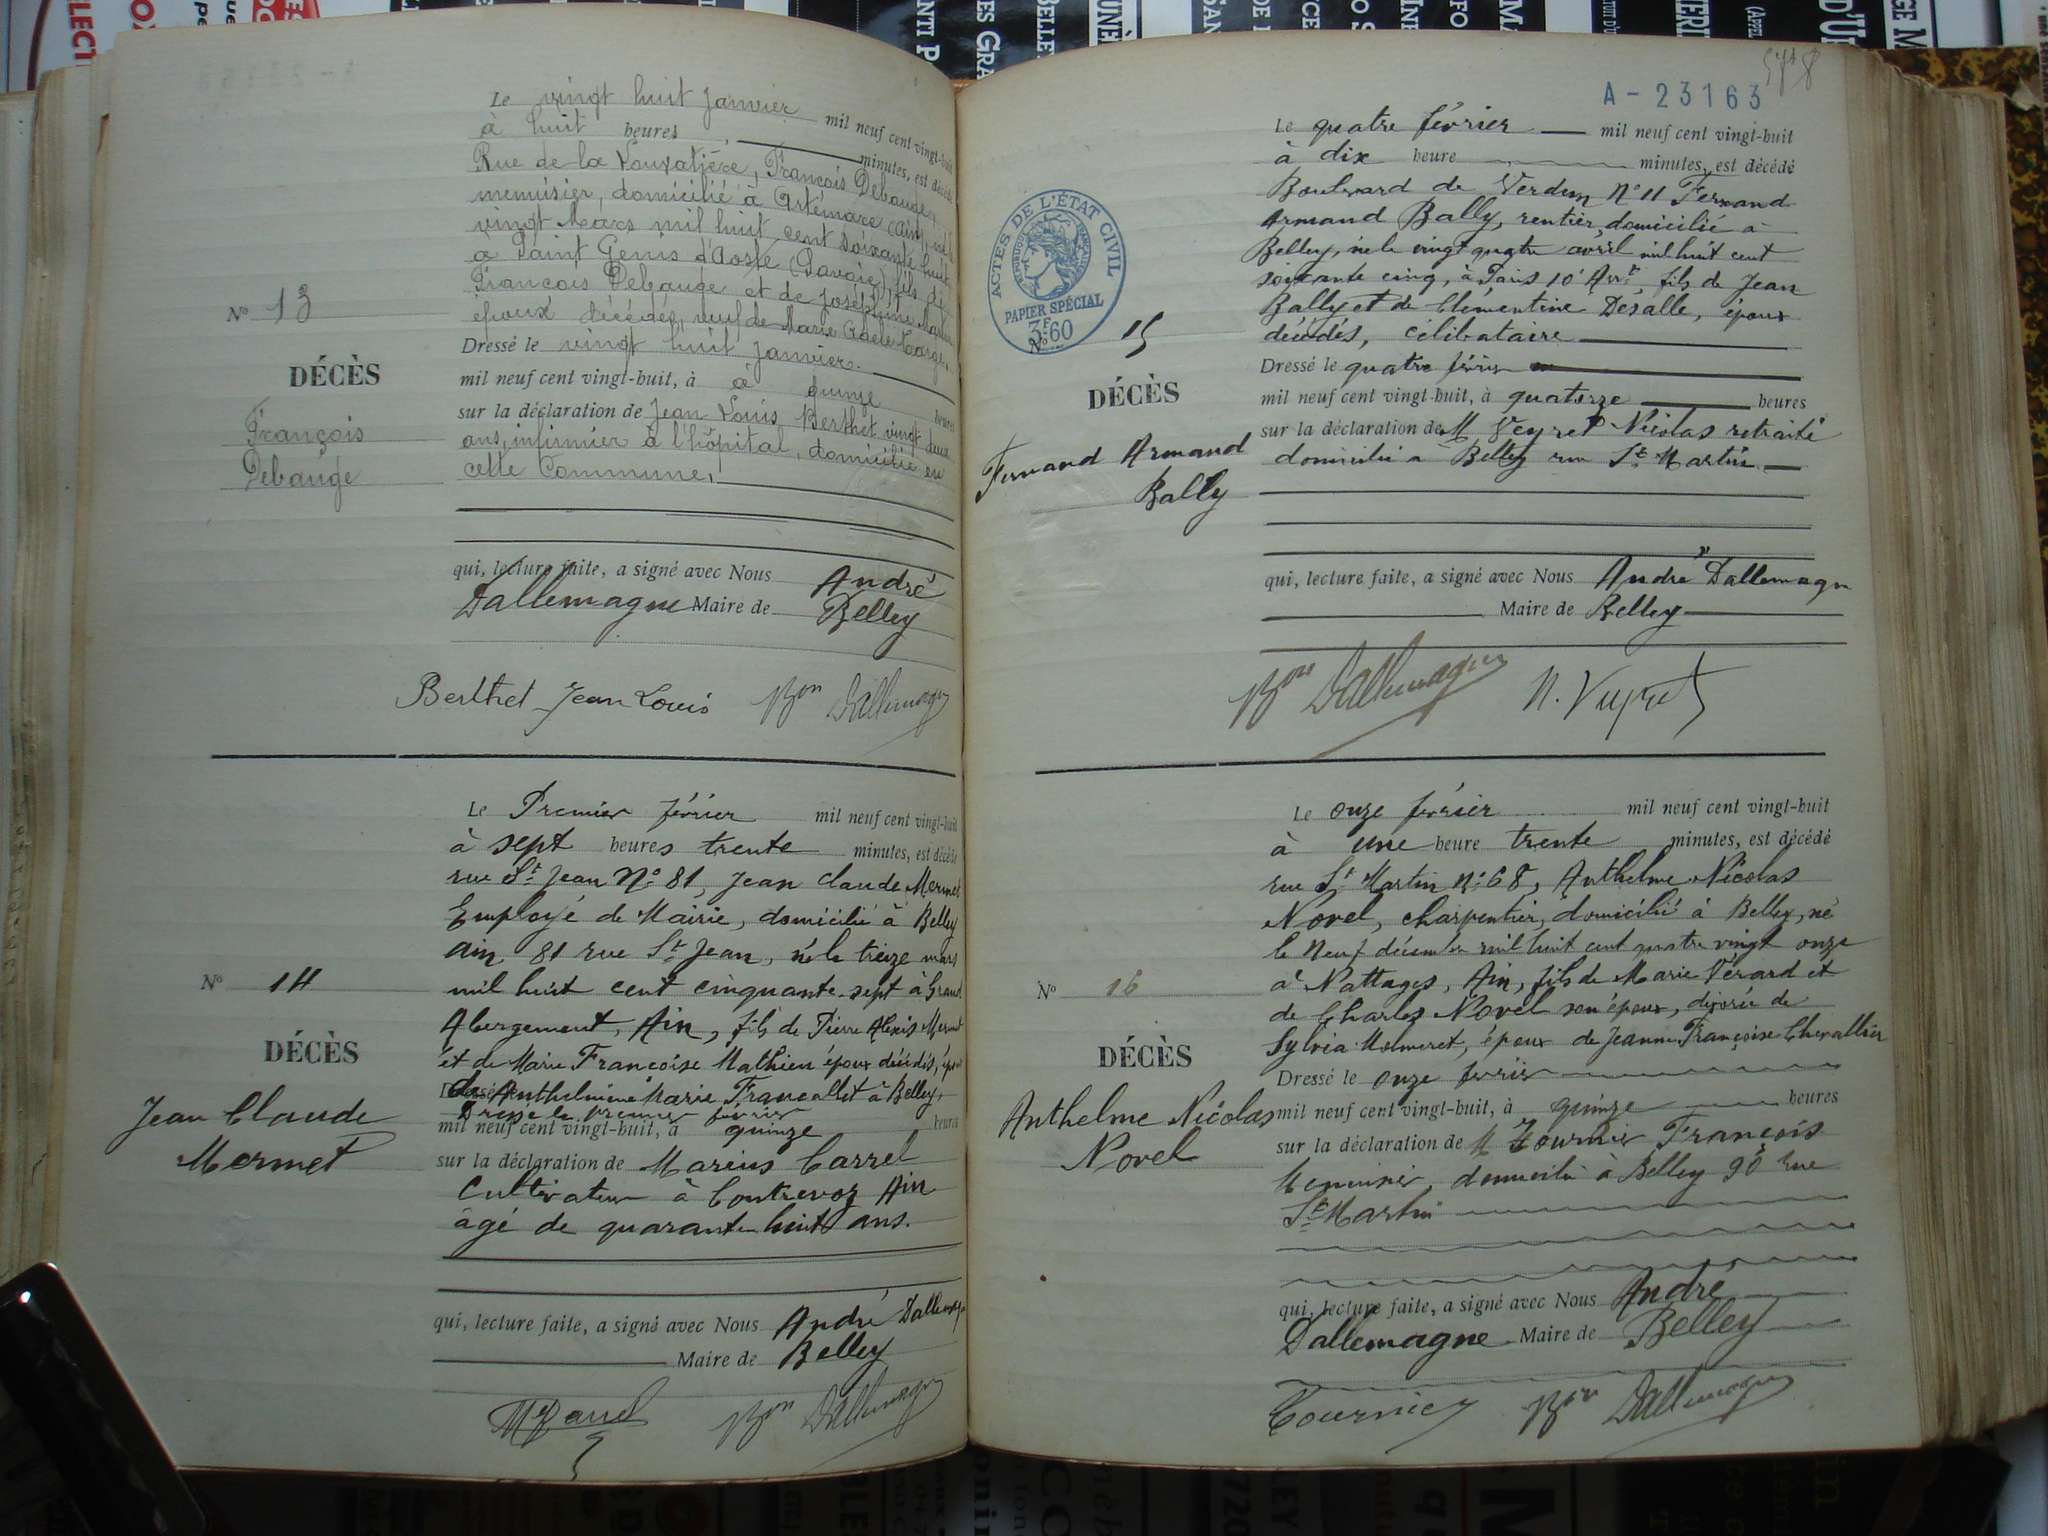 Le vingt huit Janvier mil neuf cent vingt-huit
à huit heures minutes, est décédé
Rue de la Louvatière, François Debauge
menuisier, domicilié à Artemare (Ain), né le
vingt Mars mil huit cent soixante huit
à Saint Genis d'Aoste (Savoie), fils de
François Debauge et de Joséphine
époux décédés, veuf de Marie Adèle
Nº 13
DÉCÈS
François
Debauge
Dressé le vingt huit Janvier
mil neuf cent vingt-huit, à à quinze heures
sur la déclaration de Jean Louis Berthet vingt deux
ans, infirmier à l'hôpital, domicilié en
cette Commune,
qui, lecture faite, a signé avec Nous André
Dallemagne Maire de Belley
Berthet Jean Louis Bon Dallemagne
Le Premier février mil neuf cent vingt-huit
à sept heures trente minutes, est décédé
rue St Jean Nº 81, Jean Claude Mermet
Employé de Mairie, domicilié à Belley
Ain 81 rue St Jean, né le treize mars
mil huit cent cinquante-sept à Grand
Abergement, Ain, fils de Pierre Alexis Mermet
et de Marie Françoise Mathieu époux décédés, époux
de Anthelmine Marie Francallet à Belley,
Dressé le premier février
Nº 14
DÉCÈS
Jean Claude
Mermet
mil neuf cent vingt-huit, à quinze heures
sur la déclaration de Marius Carrel
Cultivateur à Contrevoz Ain
âgé de quarante huit ans.
qui, lecture faite, a signé avec Nous André Dallemagne
Maire de Belley
Bon Dallemagne
A-23163
Le quatre février mil neuf cent vingt-huit
à dix heure minutes, est décédé
Boulevard de Verdun Nº 11 Fernand
Armand Bally, rentier, domicilié à
Belley, né le vingt quatre avril mil huit cent
soixante cinq, à Paris 10e Arrt, fils de Jean
Bally et de Clémentine Desalle, époux
décédés, célibataire
ACTES DE L'ÉTAT CIVIL
RÉPUBLIQUE FRANÇAISE
PAPIER SPÉCIAL
3F60
Nº 15
DÉCÈS
Fernand Armand
Bally
Dressé le quatre février
mil neuf cent vingt-huit, à quatorze heures
sur la déclaration de M Veyret Nicolas retraité
domicilié à Belley rue St Martin
qui, lecture faite, a signé avec Nous André Dallemagne
Maire de Belley
Bon Dallemagne N. Veyret
Le onze février mil neuf cent vingt-huit
à une heure trente minutes, est décédé
rue St Martin Nº 68, Anthelme Nicolas
Novel, charpentier, domicilié à Belley, né
le neuf décembre mil huit cent quatre vingt onze
à Nattages, Ain, fils de Marie Vérard et
de Charles Novel son époux, divorcé de
Sylvia Molmeret, époux de Jeanne Françoise Chevallier
Nº 16
DÉCÈS
Anthelme Nicolas
Novel
Dressé le onze février
mil neuf cent vingt-huit, à quinze heures
sur la déclaration de M Tournier François
Menuisier, domicilié à Belley 90 rue
St Martin
qui, lecture faite, a signé avec Nous André
Dallemagne Maire de Belley
Tournier Bon Dallemagne